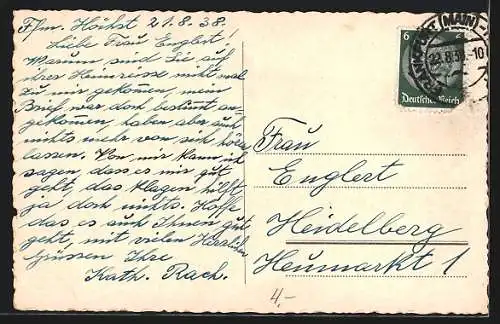 Ffm. Höchst 21.8.38.
Liebe Frau Englert!
Warum sind Sie auf
ihrer Heimreise nicht mal
zu mir gekommen, mein
Brief war doch bestimt an-
gekommen, haben aber auch
nichts mehr von sich hören
lassen. Von mir kann ich
sagen, dass es mir gut
geht, das klagen hilft
ja doch nichts. Hoffe
das es auch Ihnen gut
geht, mit vielen Herzlichen
Grüssen Ihre
Kath. Rach.
Frau
Englert
Heidelberg
Heumarkt 1
4,-
6
Deutsches Reich
FRANKFURT (MAIN)
22.8.38.-10